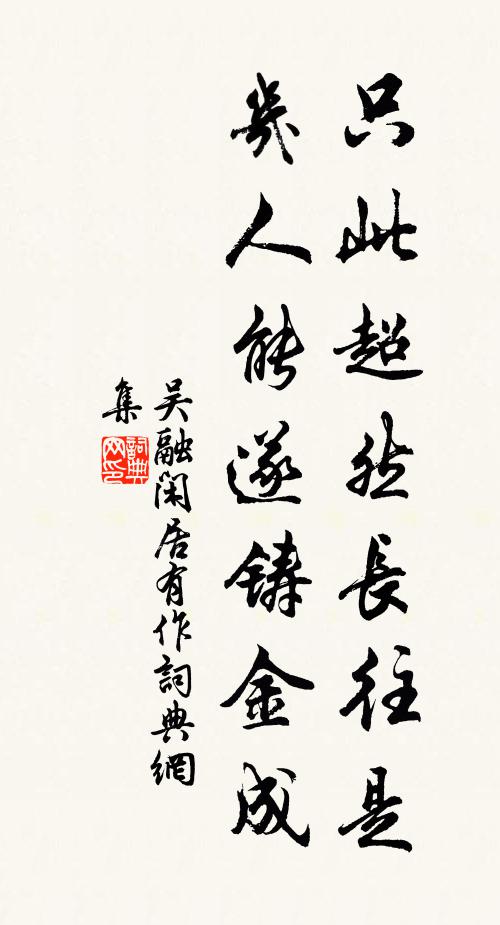 只此超然長往是
幾人能遂鑄金成
吴融閑居有作詞典網
集
詞典網印